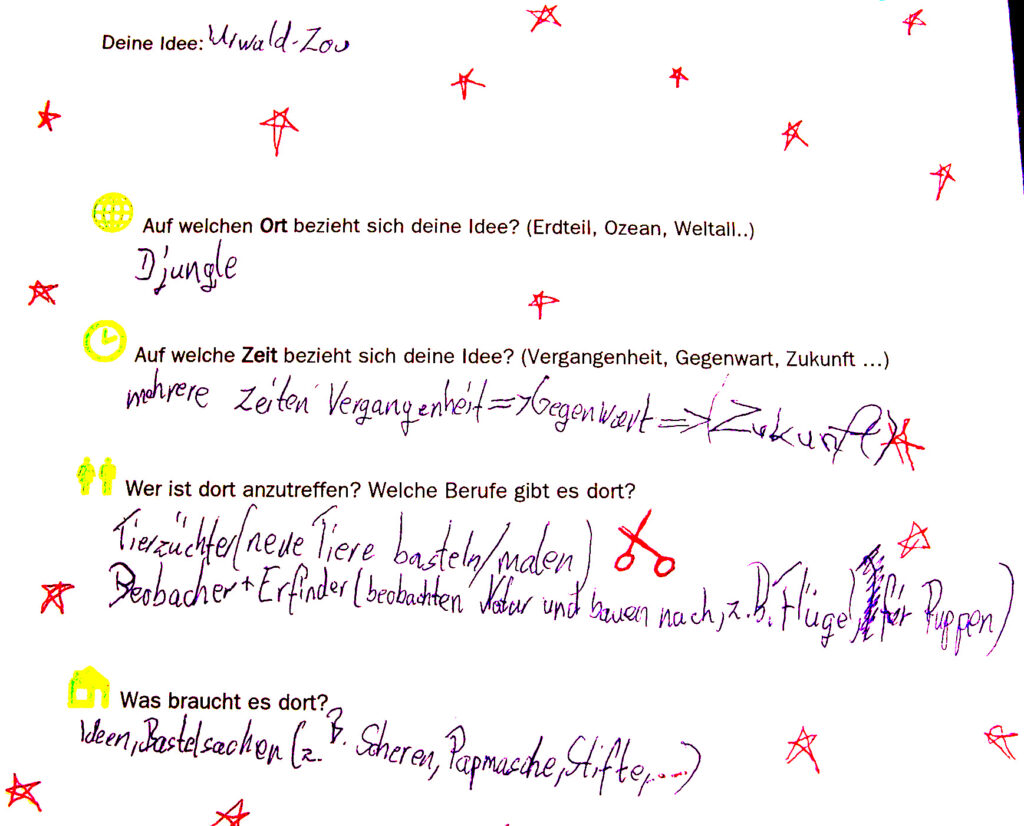 Deine Idee: Urwald-Zoo
Auf welchen Ort bezieht sich deine Idee? (Erdteil, Ozean, Weltall..)
Djungle
Auf welche Zeit bezieht sich deine Idee? (Vergangenheit, Gegenwart, Zukunft ...)
mehrere Zeiten Vergangenheit => Gegenwart => (Zukunft)
Wer ist dort anzutreffen? Welche Berufe gibt es dort?
Tierzüchter (neue Tiere basteln/malen)
Beobacher + Erfinder (beobachten Natur und bauen nach, z.B. Flügel, für Puppen)
Was braucht es dort?
Ideen, Bastelsachen (z.B. Scheren, Papmasche, Stifte, ...)